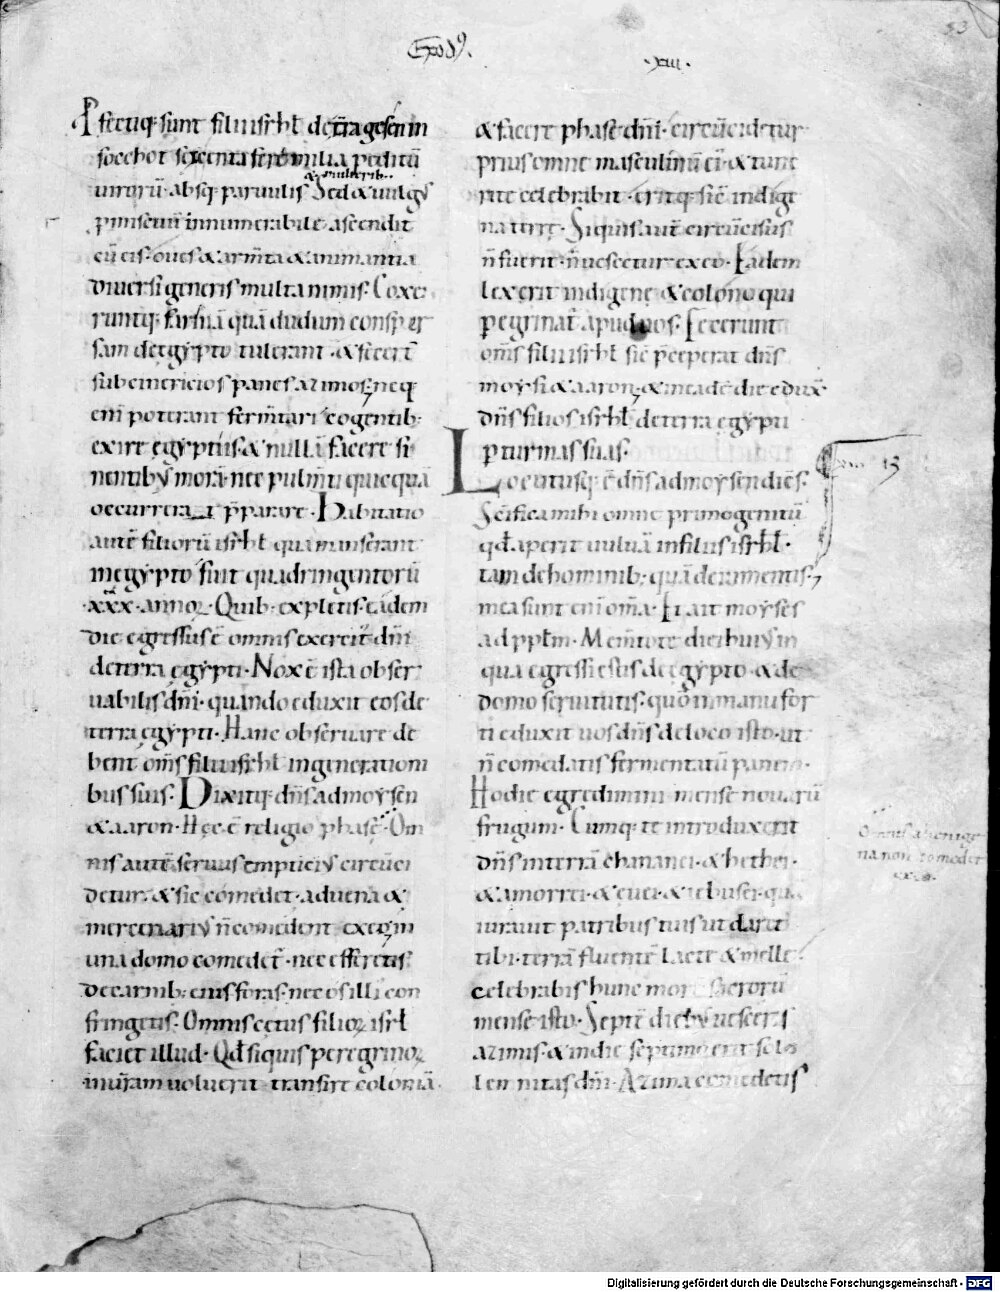 Exodꝰ.
·xiii·
53
Ꝓfectiq; sunt filii isrł det̄ra gessen in
socchot sexcenta ferē milia peditū
& mulierib;
uirorū· absq; paruulis Sed & uulgꝰ
ꝓmiscuū innumerabile ascendit
cū eis· oues & arm̄ta & animantia
diuersi generis multa nimis· Coxe
runtq; farinā quā dudum consper
sam de egypto tulerant· & fecerт̄
subcinericios panes azimos; neq;
enī poterant ferm̄tari cogentib;
exire egyptiis· & nullā facere si
nentibꝰ morā· nec pulm̄ti quicquā
occurrerat p̄parare· Habitatio
autē filiorū isrł qua manserant
in egypto fuit quadringentorū
·xxx· annoꝝ· Quib; expletis· eadem
die egressus ē omnis exercit; dn̄i
de terra egypti· Nox ē ista obser
uabilis dn̄i· quando eduxit eos de
terra egypti· Hanc obseruare de
bent om̄s filii isrł in generationi
bus suis· Dixitq; dn̄s ad moysen
& aaron· Hęc ē religio phasē· Om
nis autē seruus empticiꝰ circūci
detur· & sic comedet· aduena &
mercennariꝰ n̄ comedent ex eo; in
una domo comedet̄· nec efferetis
de carnib; eius foras· nec os illi con
fringetis· Omnis cetus filioꝝ isrł
faciet illud· Qđ si quis peregrinoꝝ
in ur̄am uoluerit transire coloniā·
& facere phasē dn̄i· circūcidetur
prius omne masculinū ei; & tunc
rite celebrabit· eritq; sic indige
na terrę· Si quis aut̄ circūcisus
n̄ fuerit· n̄ uescetur ex eo· Eadem
lex erit indigene & colono qui
peregrinat̄ apud uos· Fecerunt
om̄s filii isrł sic p̄ceperat dn̄s
moysi & aaron; & in eadē die edux
dn̄s filios isrł de terra egypti
ꝑ turmas suas·
Locutusq; ē dn̄s ad moysen dicēs·
Scīfica mihi omne primogenitū
qđ aperit uuluā in filiis isrł·
tam de hominib; quā de iumentis;
mea sunt enī om̄a· Et ait moyses
ad ppłm· Mem̄tote diei huiꝰ in
qua egressi estis de egypto & de
domo seruitutis· quō in manu for
ti eduxit uos dn̄s de loco isto· ut
n̄ comedatis fermentatū panem·
Hodie egredimini mense nouarū
frugum· Cumq; te introduxerit
dn̄s in terrā chananei· & hethei·
& amorrei· & euei· & iebusei· quā
iurauit patribus tuis ut daret
tibi· terrā fluentē lacte & melle·
celebrabis hunc morē sacrorū
mense isto· Septē diebꝰ uesceris
azimis· & in die septimo erit sol
lemnitas dn̄i· Azima comedetis
13
Omnis alienige
na non comedet
ex eo·
Digitalisierung gefördert durch die Deutsche Forschungsgemeinschaft - DFG